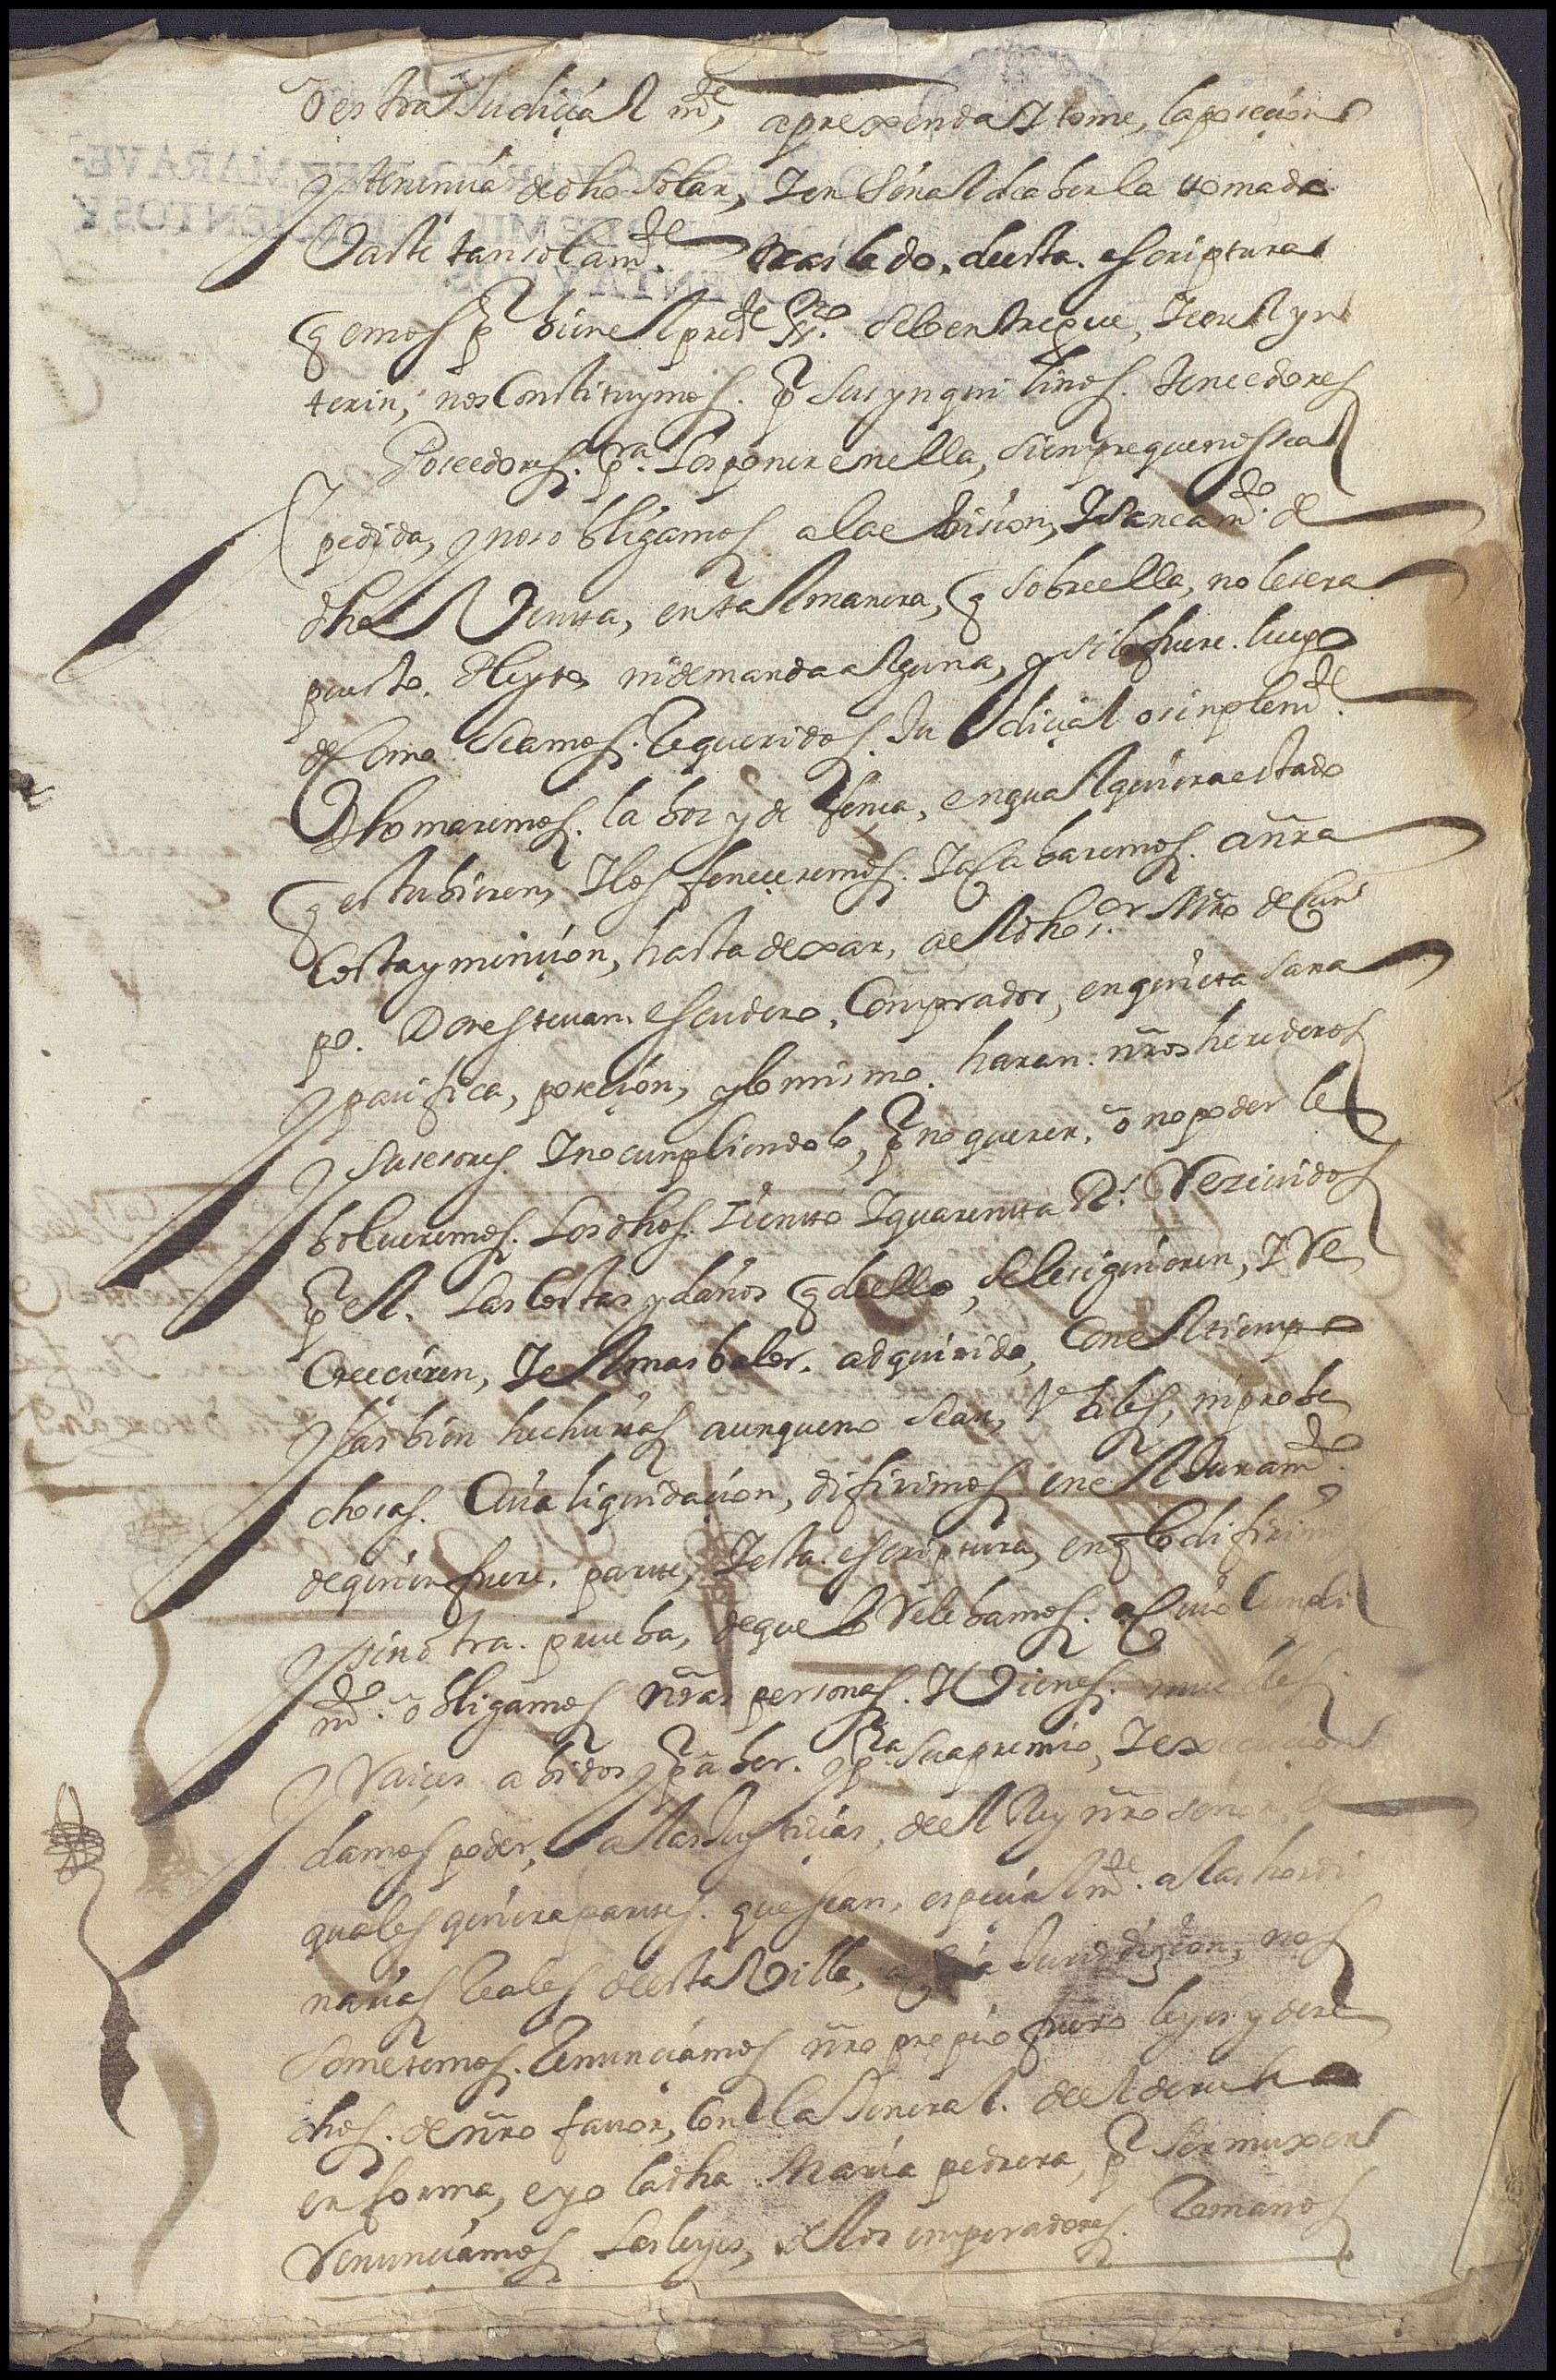 o estraJudiçial mte, aprexenda y tome, la poseçion
y tenençia de dho Solar, Y en Señal de aberla tomado
Vaste tan solamte traslado. desta. escriptura
q emos pr bien el prete ssno. se le entregue, Y en el yn
terin, nos Constituymos. pr sus ynquilinos. tenedores
Y Poseedores. pra. Los poner en ella, siempre que nos sea
pedida, y noso bligamos a la ebiçion, Y Saneamto. de
dha Venta, en tal manera, q sobre ella, no le sera
puesto. Pleyto, ni demanda alguna, y si le fuere. luego
q Como seamos. Requeridos. Judiçial o sinplemte.
Thomaremos. la bos y defensa, en qualquiera estado
q estubieren, Y los feneçeremos. Y acabaremos. a ñra
Costa y minçion, hasta dexar, a el dho sor Mro de Cam
po. Don esteuan escudero, Comprador, en quieta sana
y paçifica, poseçion, y lo mismo. haran. ñros herederos
y susesores. Y no cunpliendolo, pr no querer, o no poder le
bolueremos. Los dhos. Ciento Y quarenta Rs. Reziuidos
pr el. Las Costas y daños q de ello, se le siguieren, Y Re
Creçieren, Y el mas balor. adquirido, Con el tiempo
y las bien hechurias aunque no sean, Vtiles, ni probe
chosas. Cuia liquidaçion, difirimos en el Juramto.
de quien fuere. parte, Y esta. escriptura, en q lo difirimos
y sin otra. prueba, de que le Relebamos. a Cuio Cunpli
mto. obligamos ñras personas. Y Vienes. muebles
y Raiçes abidos y pr aber. y pra Su apremio, Y execuçion
damos poder, a las Justiçias, de el Rey ñro señor de
quales quiera partes. que sean, espeçialmte. a las hordi
narias Reales de esta Villa, a Cuia Jurisdizion, nos
Sometemos. Renunçiamos ñro propio fuero leyes y dere
chos. de ñro fauor, Con la General. de el derecho
en forma, e yo la dha Maria pedrera, pr Ser muxer
Renunçiamos Las leyes, de los enperadores. Romanos